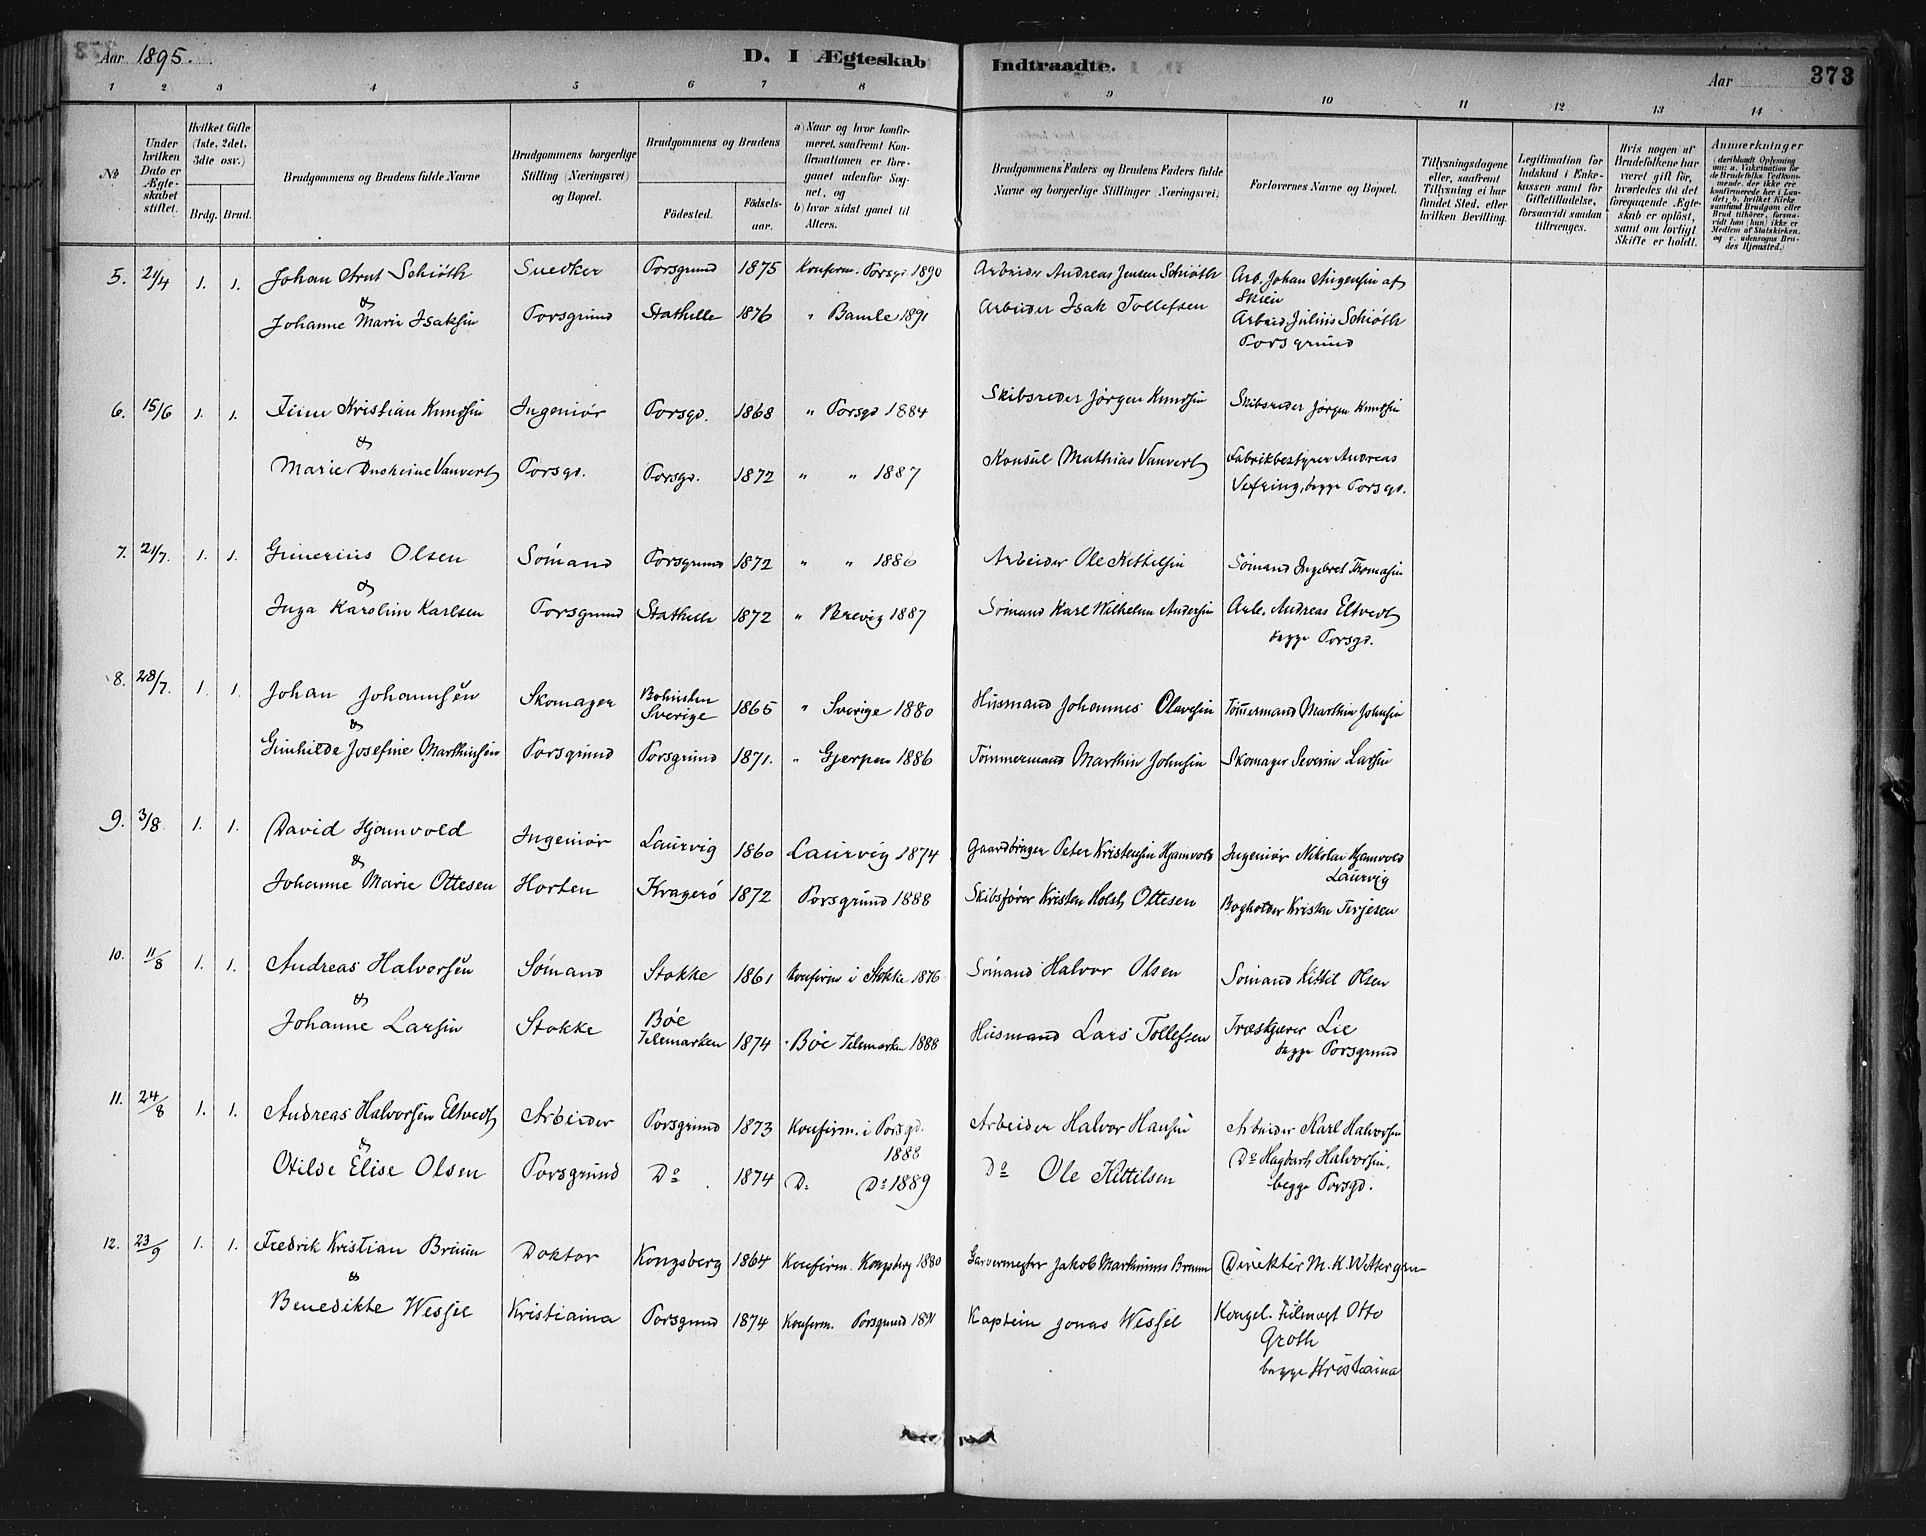 Aar 1895.
D. I Ægteskab Indtraadte.
Aar 373
1 2 3 4 5 6 7 8 9 10 11 12 13 14
No
Under hvilken Dato er Ægteskabet stiftet.
Hvilket Gifte (1ste, 2det, 3die osv.)
Brdg. Brud.
Brudgommens og Brudens fulde Navne
Brudgommens borgerlige Stilling (Næringsvei) og Bopæl.
Brudgommens og Brudens
Födested. Födselsaar.
a) Naar og hvor konfirmeret, saafremt Konfirmationen er foregaaet udenfor Sognet, og
b) hvor sidst gaaet til Alters.
Brudgommens Faders og Brudens Faders fulde Navne og borgerlige Stillinger (Næringsvei).
Forlovernes Navne og Bopæl.
Tillysningsdagene eller, saafremt Tillysning ei har fundet Sted, efter hvilken Bevilling.
Legitimation for Indskud i Enkekassen samt for Giftetilladelse, forsaavidt saadan tiltrænges.
Hvis nogen af Brudefolkene har været gift för, hvorledes da det foregaaende Ægteskab er oplöst, samt om lovligt Skifte er holdt.
Anmærkninger
5. 21/4 1. 1. Johan Arnt Schiøth Snedker Porsgrund 1875 Konfirm. Porsgr 1890 Arbeider Andreas Jensen Schiøth Arb. Johan
af Skien
&
Johanne Marie Isaksen Porsgrund Stathelle 1876 " Bamle 1891 Arbeider Isak Tollefsen Arbeid. Julius Schiøth
Porsgrund
6. 15/6 1. 1. Kristian Knudsen Ingeniør Porsgd. 1868 " Porsgd 1884 Skibsreder Jørgen Knudsen Skibsreder Jørgen Knudsen
&
Marie Vauvert Porsgd. Porsgd. 1872 " " 1887 Konsul Mathias Vauvert Fabrikbestyrer Andreas
Vefring, begge Porsgd.
7. 21/7. 1. 1. Gunerius Olsen Sømand Porsgrund 1872 " " 1886 Arbeider Ole Kittilsen Sømand Ingebret Thomasen
&
Inga Karoline Karlsen Porsgrund Stathelle 1872 " Brevig 1887 Sømand Karl Wilhelm Andersen Arb. Andreas Eltvedt
begge Porsgd.
8. 28/7. 1. 1. Johan Johannsen Skomager Bohuslen Sverige 1865 " Sverige 1880 Husmand Johannes Olavesen Tømmermand Marthin Johnsen
&
Gunhilde Josefine Marthinsen Porsgrund Porsgrund 1871. " Gjerpen 1886 Tømmermand Marthin Johnsen Skomager Severin Larsen
9. 3/8. 1. 1. David Hjamvold Ingeniør Laurvig 1860 Laurvig 1874 Gaardbruger Peter Kristensen Hjamvold Ingeniør Nikolai Hjamvold
Laurvig
&
Johanne Marie Ottesen Horten Kragerø 1872 Porsgrund 1888 Skibsfører Kristen Holst Ottesen Bogholder Kristen Terjesen
10. 11/8 1. 1. Andreas Halvorsen Sømand Stokke 1861 Konfirm i Stokke 1876 Sømand Halvor Olsen Sømand Kittil Olsen
&
Johanne Larsen Stokke Bøe Telemarken 1874 Bøe Telemarken 1888 Husmand Lars Tollefsen Træskjærer Lie
begge Porsgrund
11. 24/8 1. 1. Andreas Halvorsen Eltvedt Arbeider Porsgrund 1873 Konfirm. i Porsgd. 1888 Arbeider Halvor Hansen Arbeider Karl Halvorsen
&
Otilde Elise Olsen Porsgrund Do 1874 D. Do 1889 Do Ole Kittilsen Do Hagbart Halvorsen,
begge Porsgd.
12. 23/9 1. 1. Fredrik Kristian Bruun Doktor Kongsberg 1864 Konfirm. Kongsberg 1880 Garvermester Jakob Marthinius Bruun Direktør M. K. Wettergren
&
Benedikte Wessel Kristiania Porsgrund 1874 Konfirm. Porsgrund 1891 Kaptein Jonas Wessel Kongel. Otto
Groth
begge Kristiania